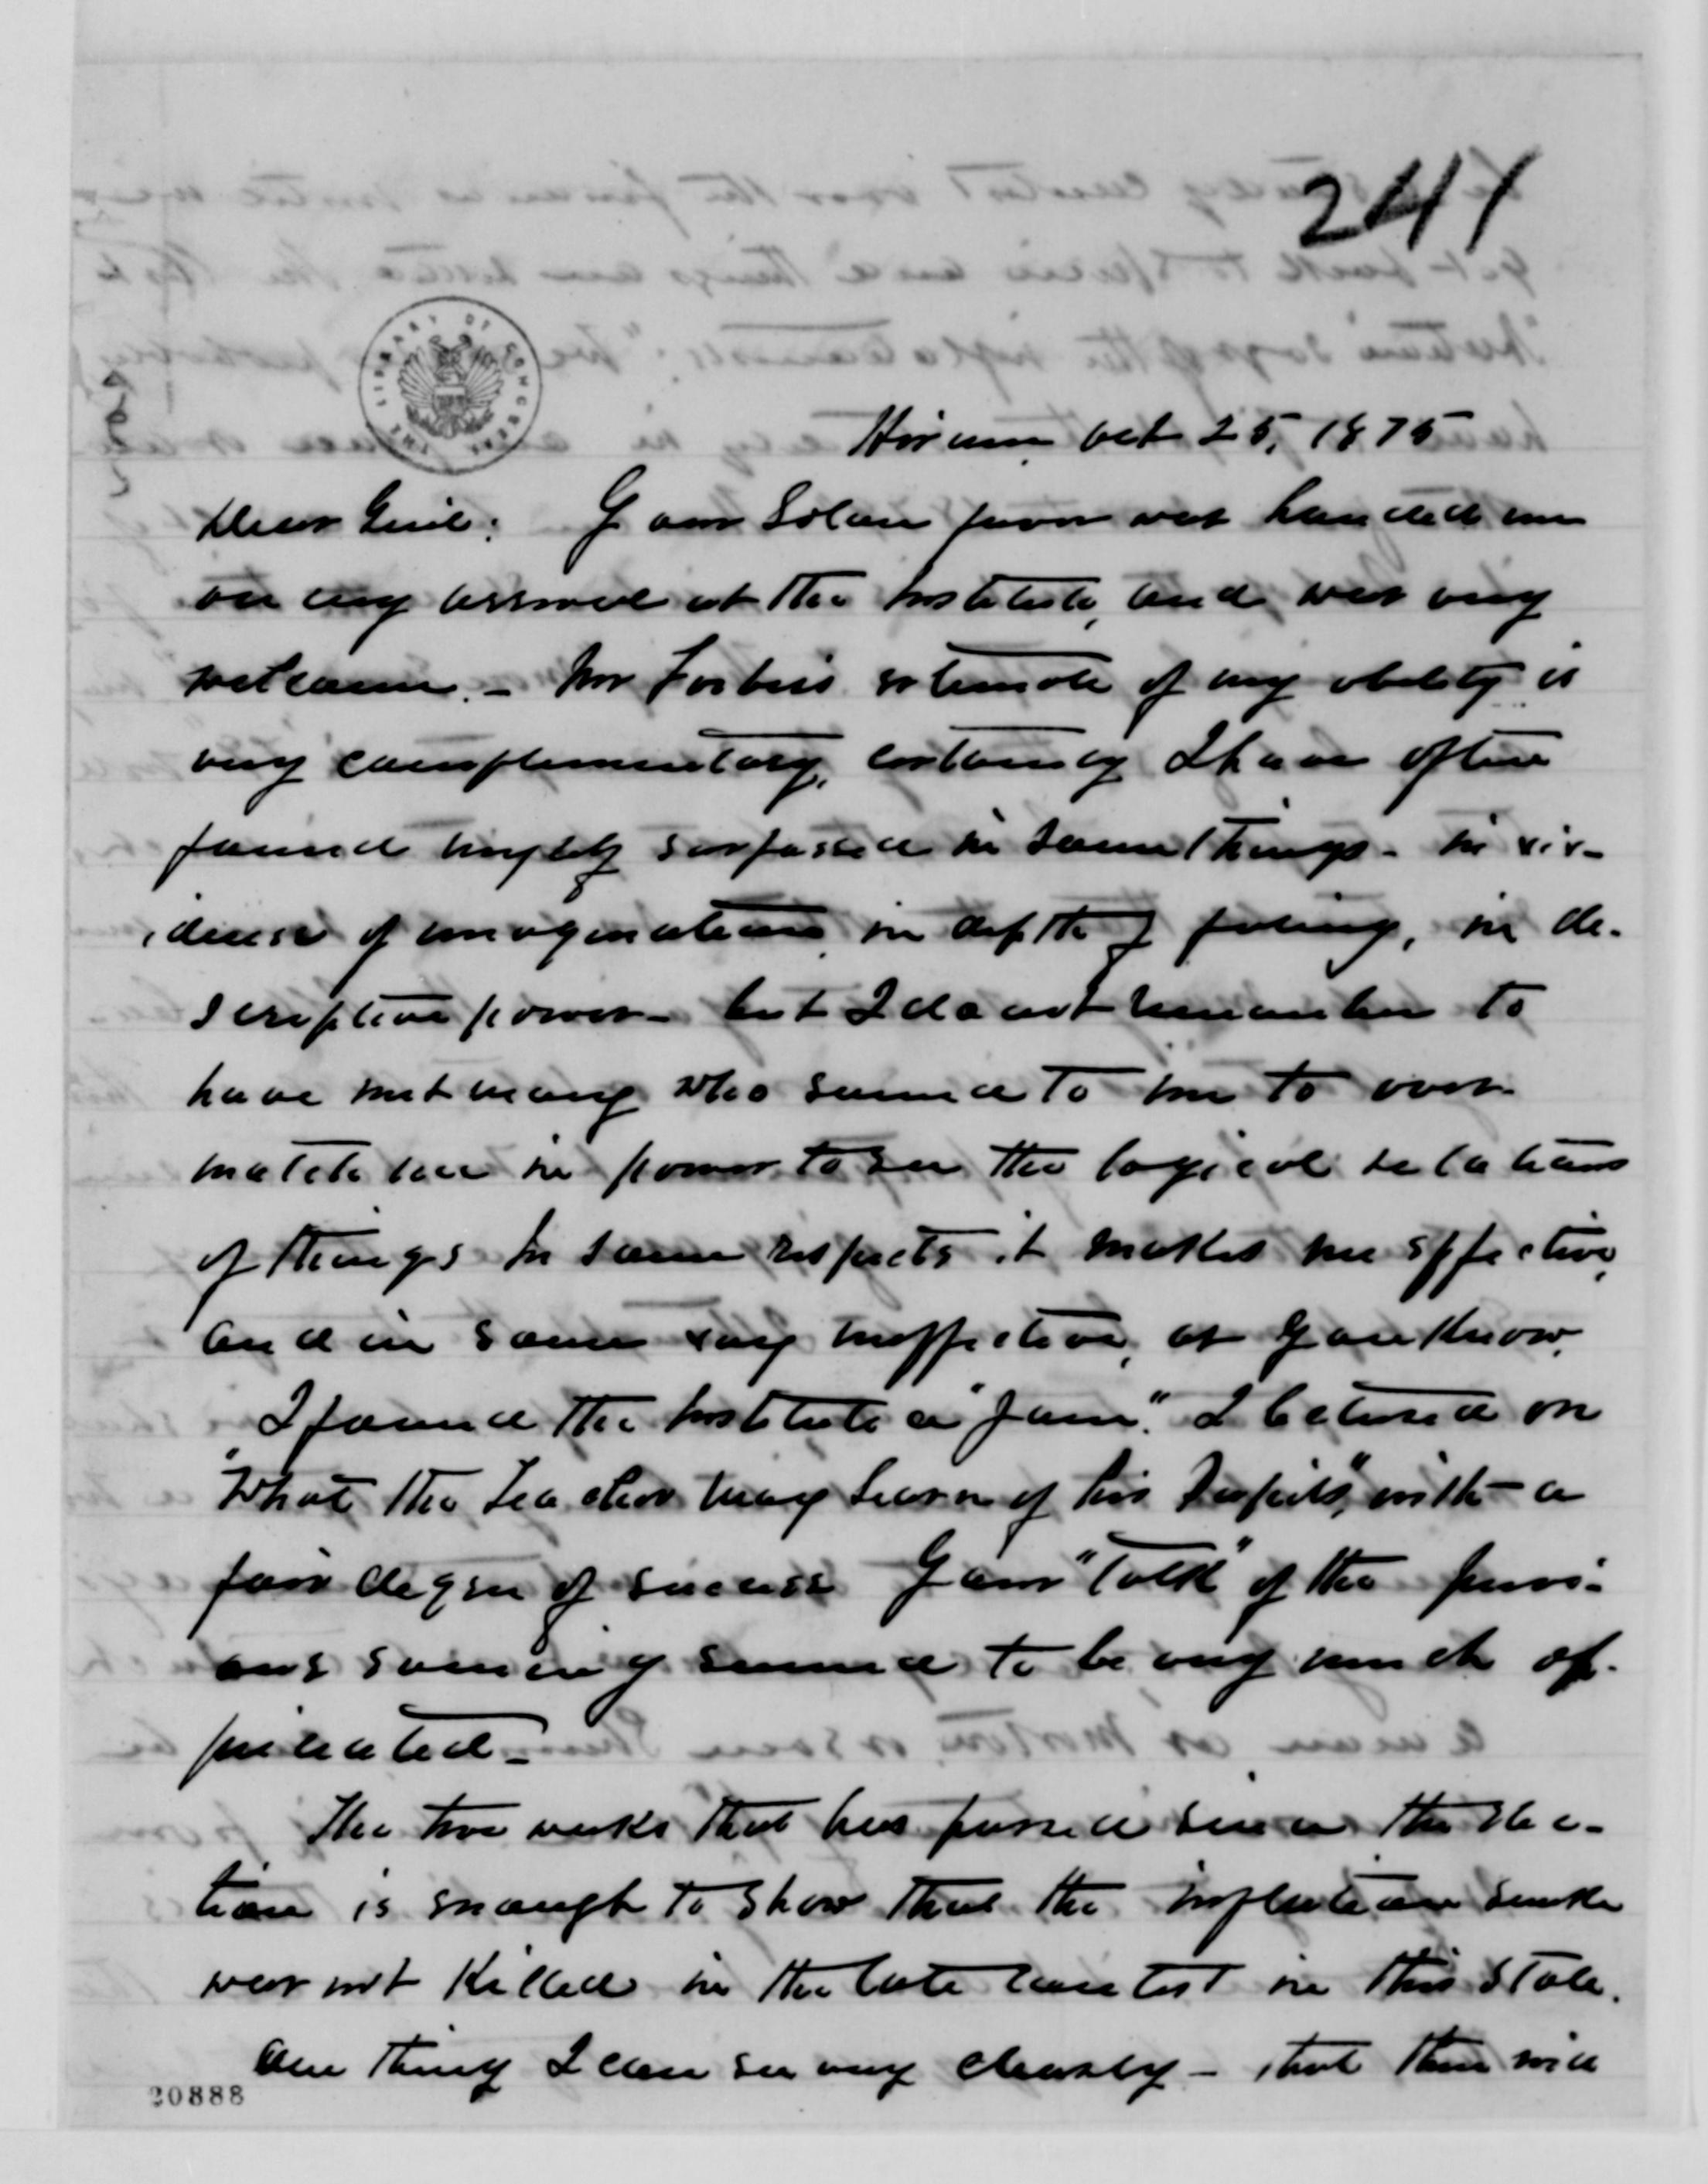 241
THE LIBRARY OF CONGRESS
Hiram Oct 25, 1875
Dear Genl: Your Solon favor was handed me
on my arrival at the Institute, and was very
welcome. - Mr Forbes' estimate of my ability is
very complimentary. Certainly I have often
found myself surpassed in some things - in viv-
idness of imagination, in depth of feeling, in de-
scriptive power - but I do not remember to
have met many who seemed to me to over-
match me in power to see the logical relations
of things. In some respects it makes me effective,
and in some very ineffective, as you know.
I found the Institute a "jam". I lectured on
"What the Teacher may Learn of his Pupils", with a
fair degree of success. Your "Talk" of the previ-
ous evening seemed to be very much ap-
preciated -
The two weeks that has passed since the elec-
tion is enough to show that the inflation snake
was not killed in the late contest in this State.
One thing I can see very clearly - that there will
20888